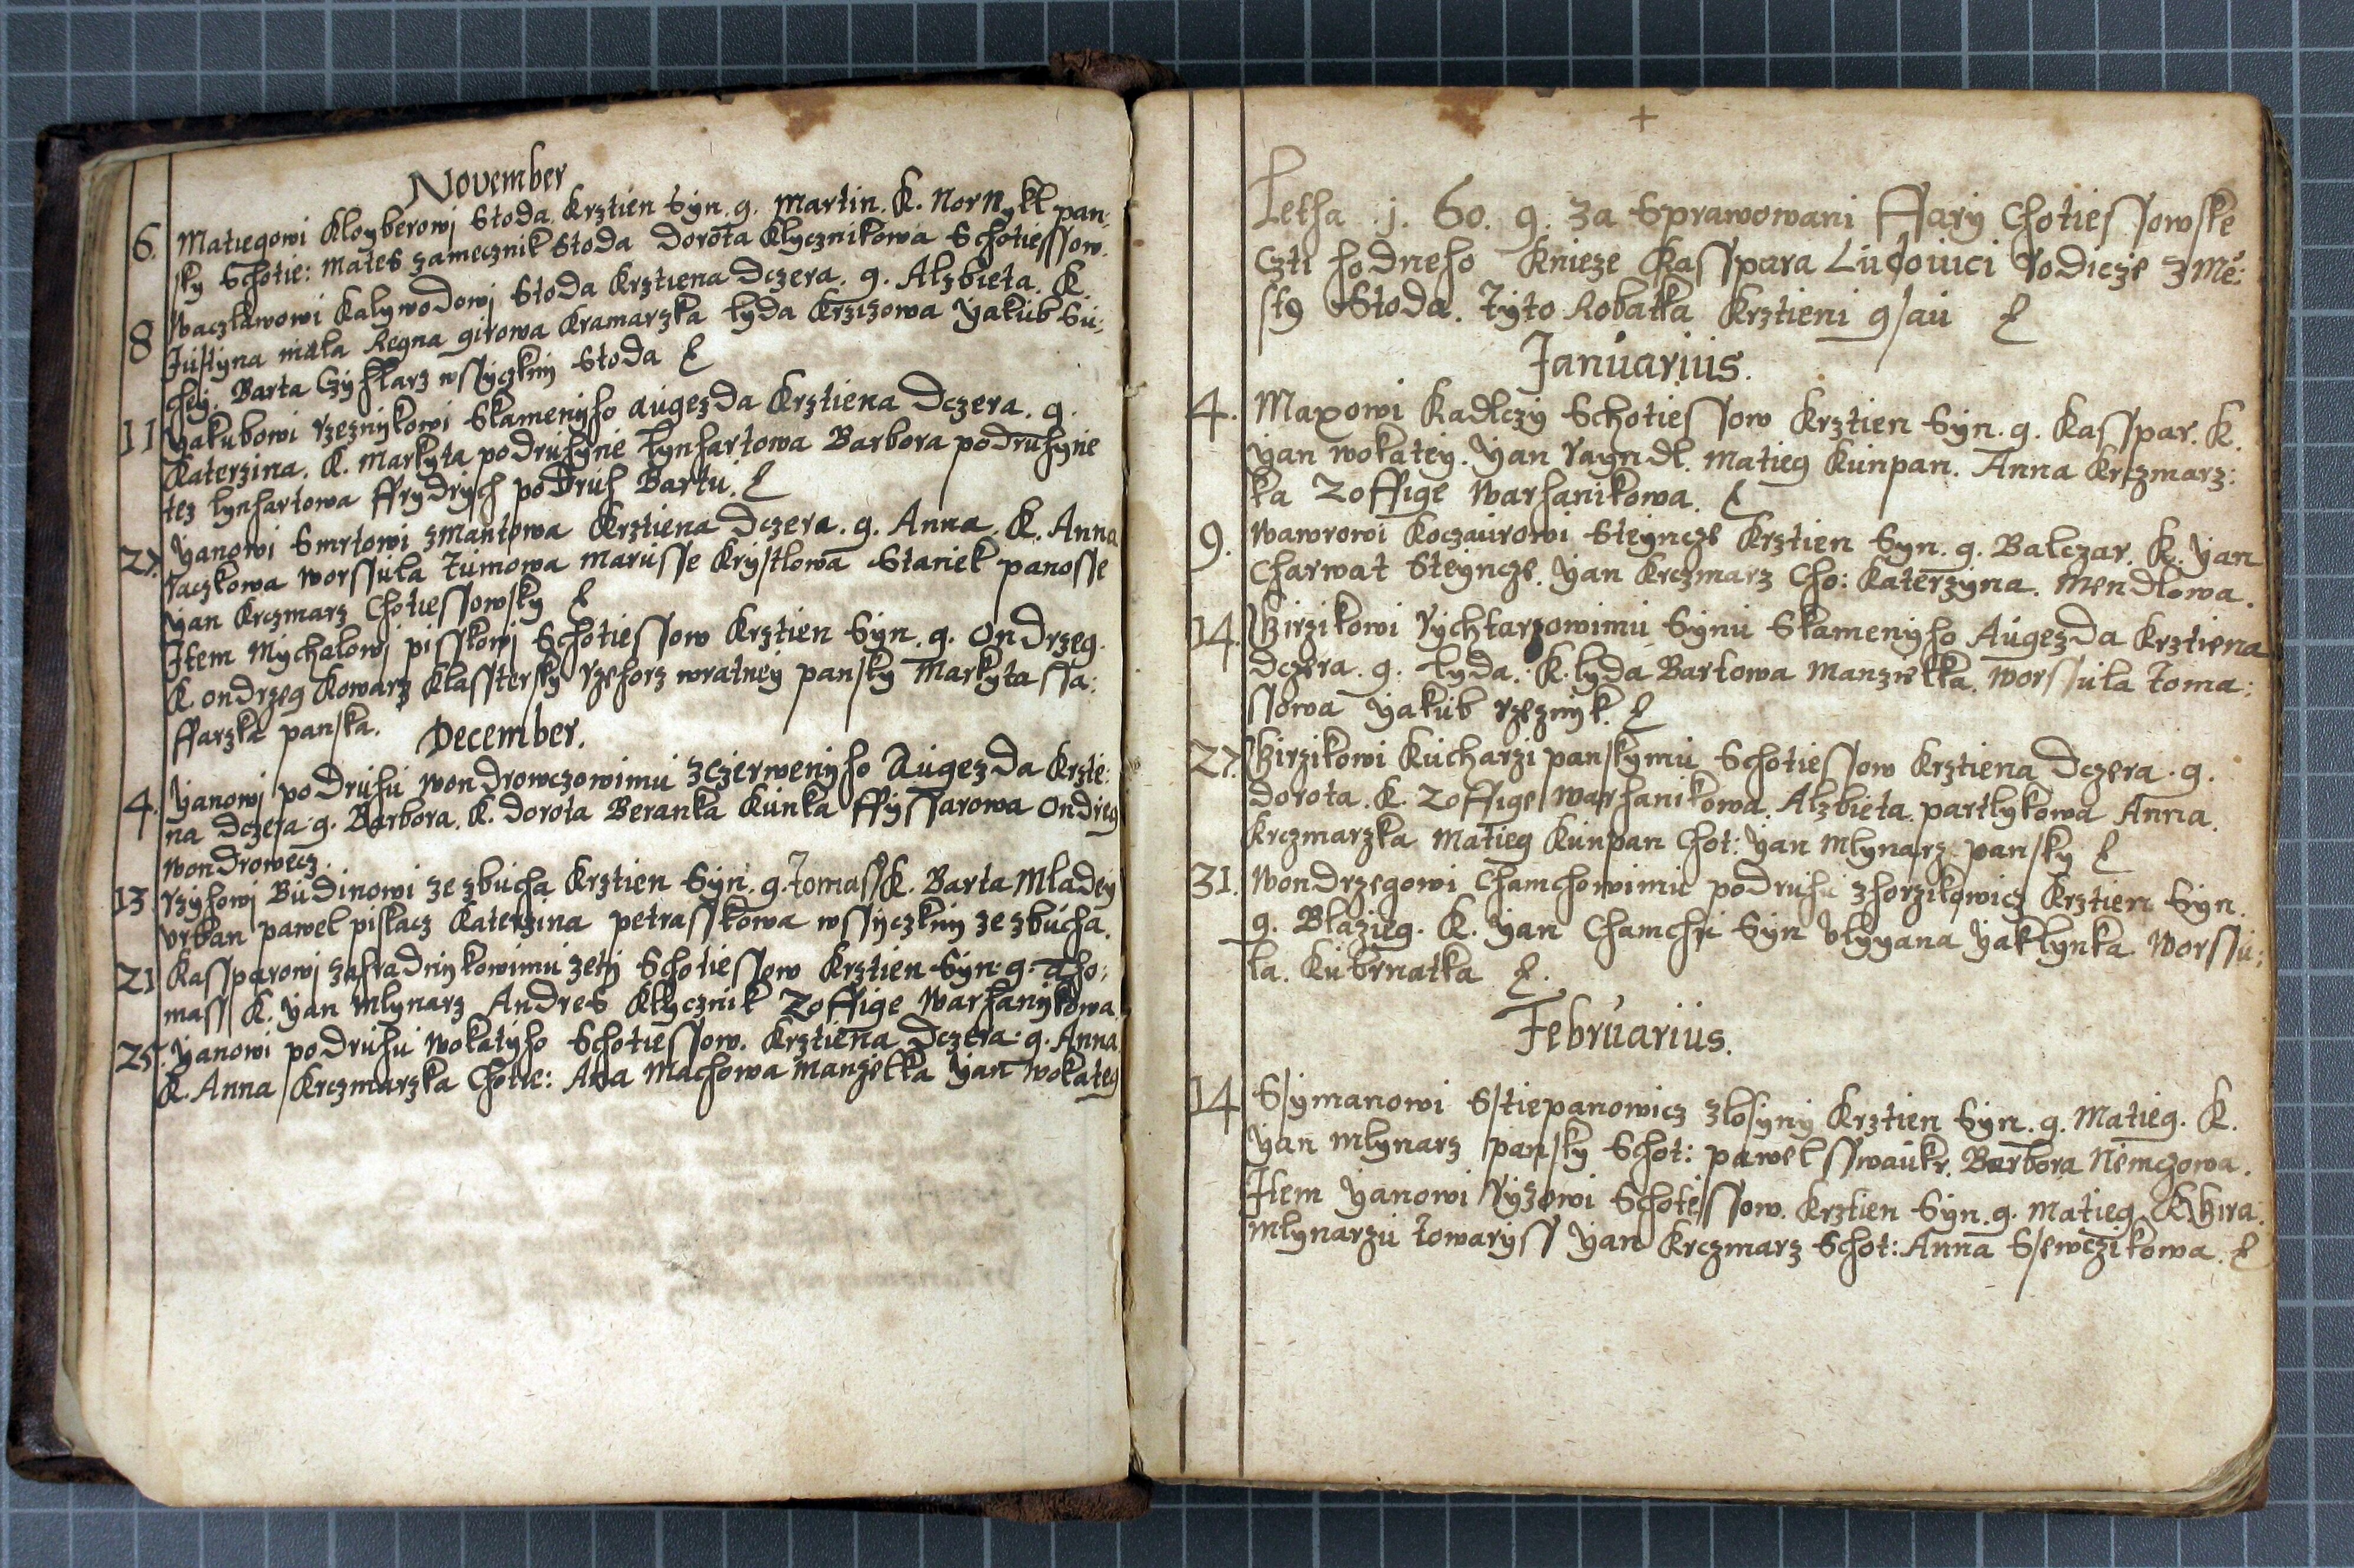 November
6. Matiegowi Kloyberowj Stoda Krztien Syn. g. Martin. K. Nor Nykl pan:
sky Schotie: Mates zamecznik Stoda Dorota Klycznikowa Schotiessow.
8 Waczlawowi Kalywodowj Stoda Krztiena Dczera. g. Alzbieta. K.
Justyna mala Regna girowa Kramarzka Lyda Krzizowa Yakub Su:
chej. Barta Czyhlarz wssyczkny Stoda
11 Yakubowi rzeznykowi Skamenyho augezda Krztiena Dczera. g.
Katerzina. K. Markyta podruhyne Lynhartowa Barbora podruhyne
tez Lynhartowa ffrydrych podruh Bartu.
27. Yanowi Smrtowi zmantowa Krztiena Dczera. g. Anna. K. Anna
raczkowa worssula Tumowa Marusse Krystlowa Staniek panosse
Yan Krczmarz Chotiessowsky
Item Mychalowj pisskowj Schotiessow Krztien Syn. g. Ondrzeg.
K. ondrzeg Kowarz Klasstersky rzehorz wratney pansky Markyta ssa:
ffarzka panska.
December.
4. Yanowj podruhu wondrowczowimu zczerwenyho Augezda Krztie:
na Dczera. g. Barbora. K. Dorota Beranka Kunka ffyssarowa Ondrieg
wondrowecz.
13 rzyhowj Budinowi ze zbucha Krztien Syn. g. Tomass K. Barta Mladey
Urban pawel piskacz Katerzina petrasskowa wssyczkny ze zbucha.
21 Kassparowj zahradnykowimu zety Schotiessow Krztien Syn. g. Tho:
mass K. Yan Mlynarz Andres Klycznik Zoffige Warhanykowa
25. Yanowi podruhu Wokatyho Schotiessow. Krztiena Dczera. g. Anna
K. Anna Krczmarzka Chotie: Anna Machowa Manzelka Yan Wokatey
+
Letha j. 60. 9. za Sprawowani ffary Chotiessowske
czti hodneho Knieze Kasspara Ludouici rodicze z Me:
sty Stoda. Tyto Robatka Krztieni gsau
Januarius.
4. Maxowi Kadlczy Schotiessow Krztien Syn. g. Kasspar. K.
Yan wokatey. Yan rayndl. Matieg Kunpan. Anna Krczmarz:
ka Zoffige Warhanikowa.
9. Wawrowi Koczaurowi Steyncze Krztien Syn. g. Balczar. K. Yan
Charwat Steyncze. Yan Krczmarz Cho: Katerzyna. Mendlowa.
14. Girzikowi rychtarzowimu Synu Skamenyho Augezda Krztiena
Dczera. g. Lyda. K. Lyda Bartowa Manzelka. Worssula Toma:
ssowa Yakub rzeznyk.
27. Girzikowi Kucharzi panskymu Schotiessow Krztiena Dczera. g.
Dorota. K. Zoffige Warhanikowa. Alzbieta. partlykowa Anna.
Krczmarzka Matieg Kunpan Chot: Yan Mlynarz pansky
31. Wondrzegowi Chamchowimu podruhu zhorzikowicz Krztien Syn.
g. Blazieg. K. Yan Chamchu Syn Ulyyana Yaklynka Worssu:
la. Kubrnatka
Februarius.
14 Ssymanowi Sstiepanowicz zlosyny Krztien Syn. g. Matieg. K.
Yan Mlynarz pansky Schot: pawel sswaukr. Barbora Nemczowa.
Item Yanowi ryzowi Schotessow. Krztien Syn. g. Matieg. K. Gira.
Mlynarzu towaryss Yan Krczmarz Schot: Anna Ssewczikowa.